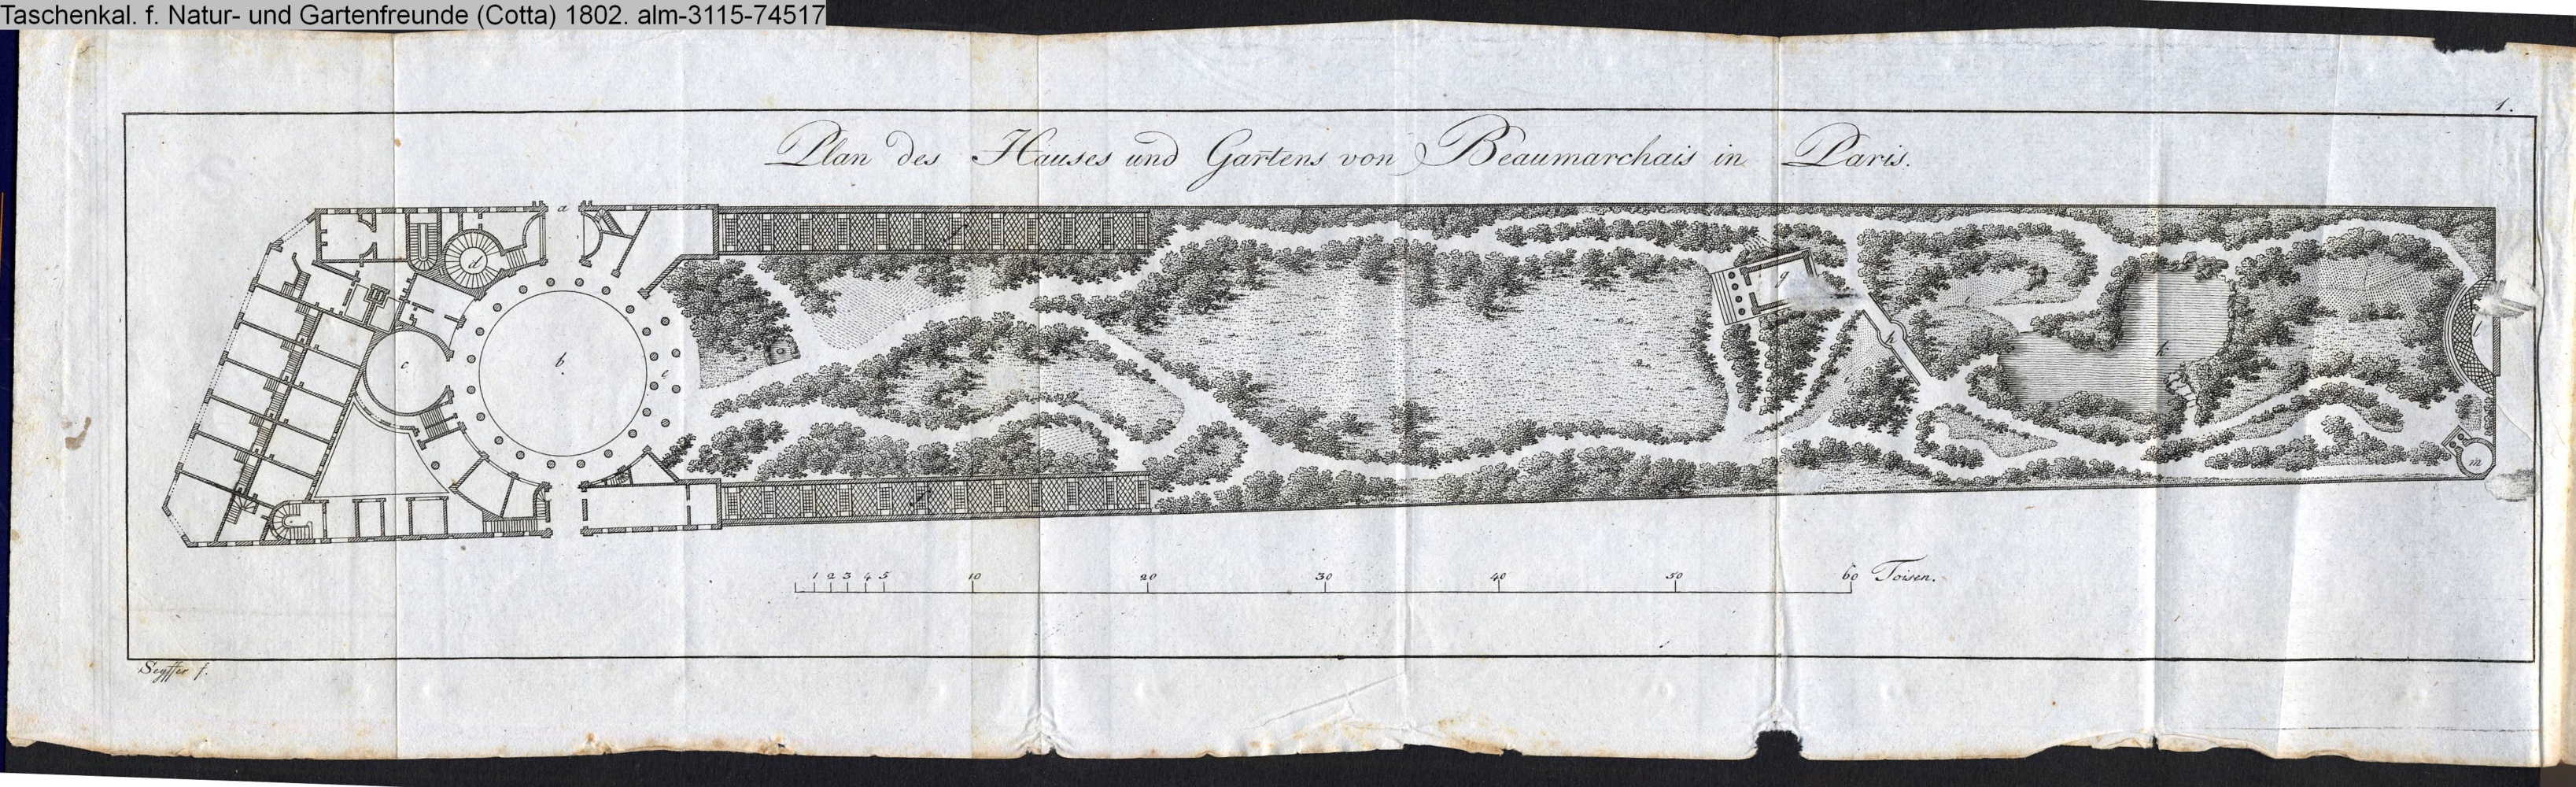 Taschenkal. f. Natur- und Gartenfreunde (Cotta) 1802. alm-3115-74517
1.
Plan des Hauses und Gartens von Beaumarchais in Paris.
a
d
g
c
b
e
h
k
l
m
1 2 3 4 5 10 20 30 40 50 60 Toisen.
Seyffer f.